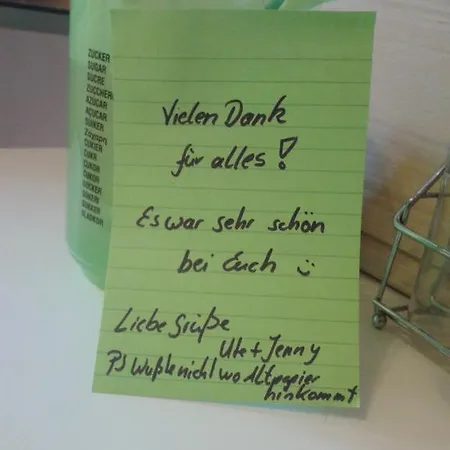 ZUCKER
SUGAR
SUCRE
ZUCCHERO
AZUCAR
AÇUCAR
SUIKER
CUKIER
CUKR
CUKOR
Vielen Dank
für alles!
Es war sehr schön
bei Euch
Liebe Grüße
Ute + Jenny
PS Wußte nicht wo Altpapier
hinkommt